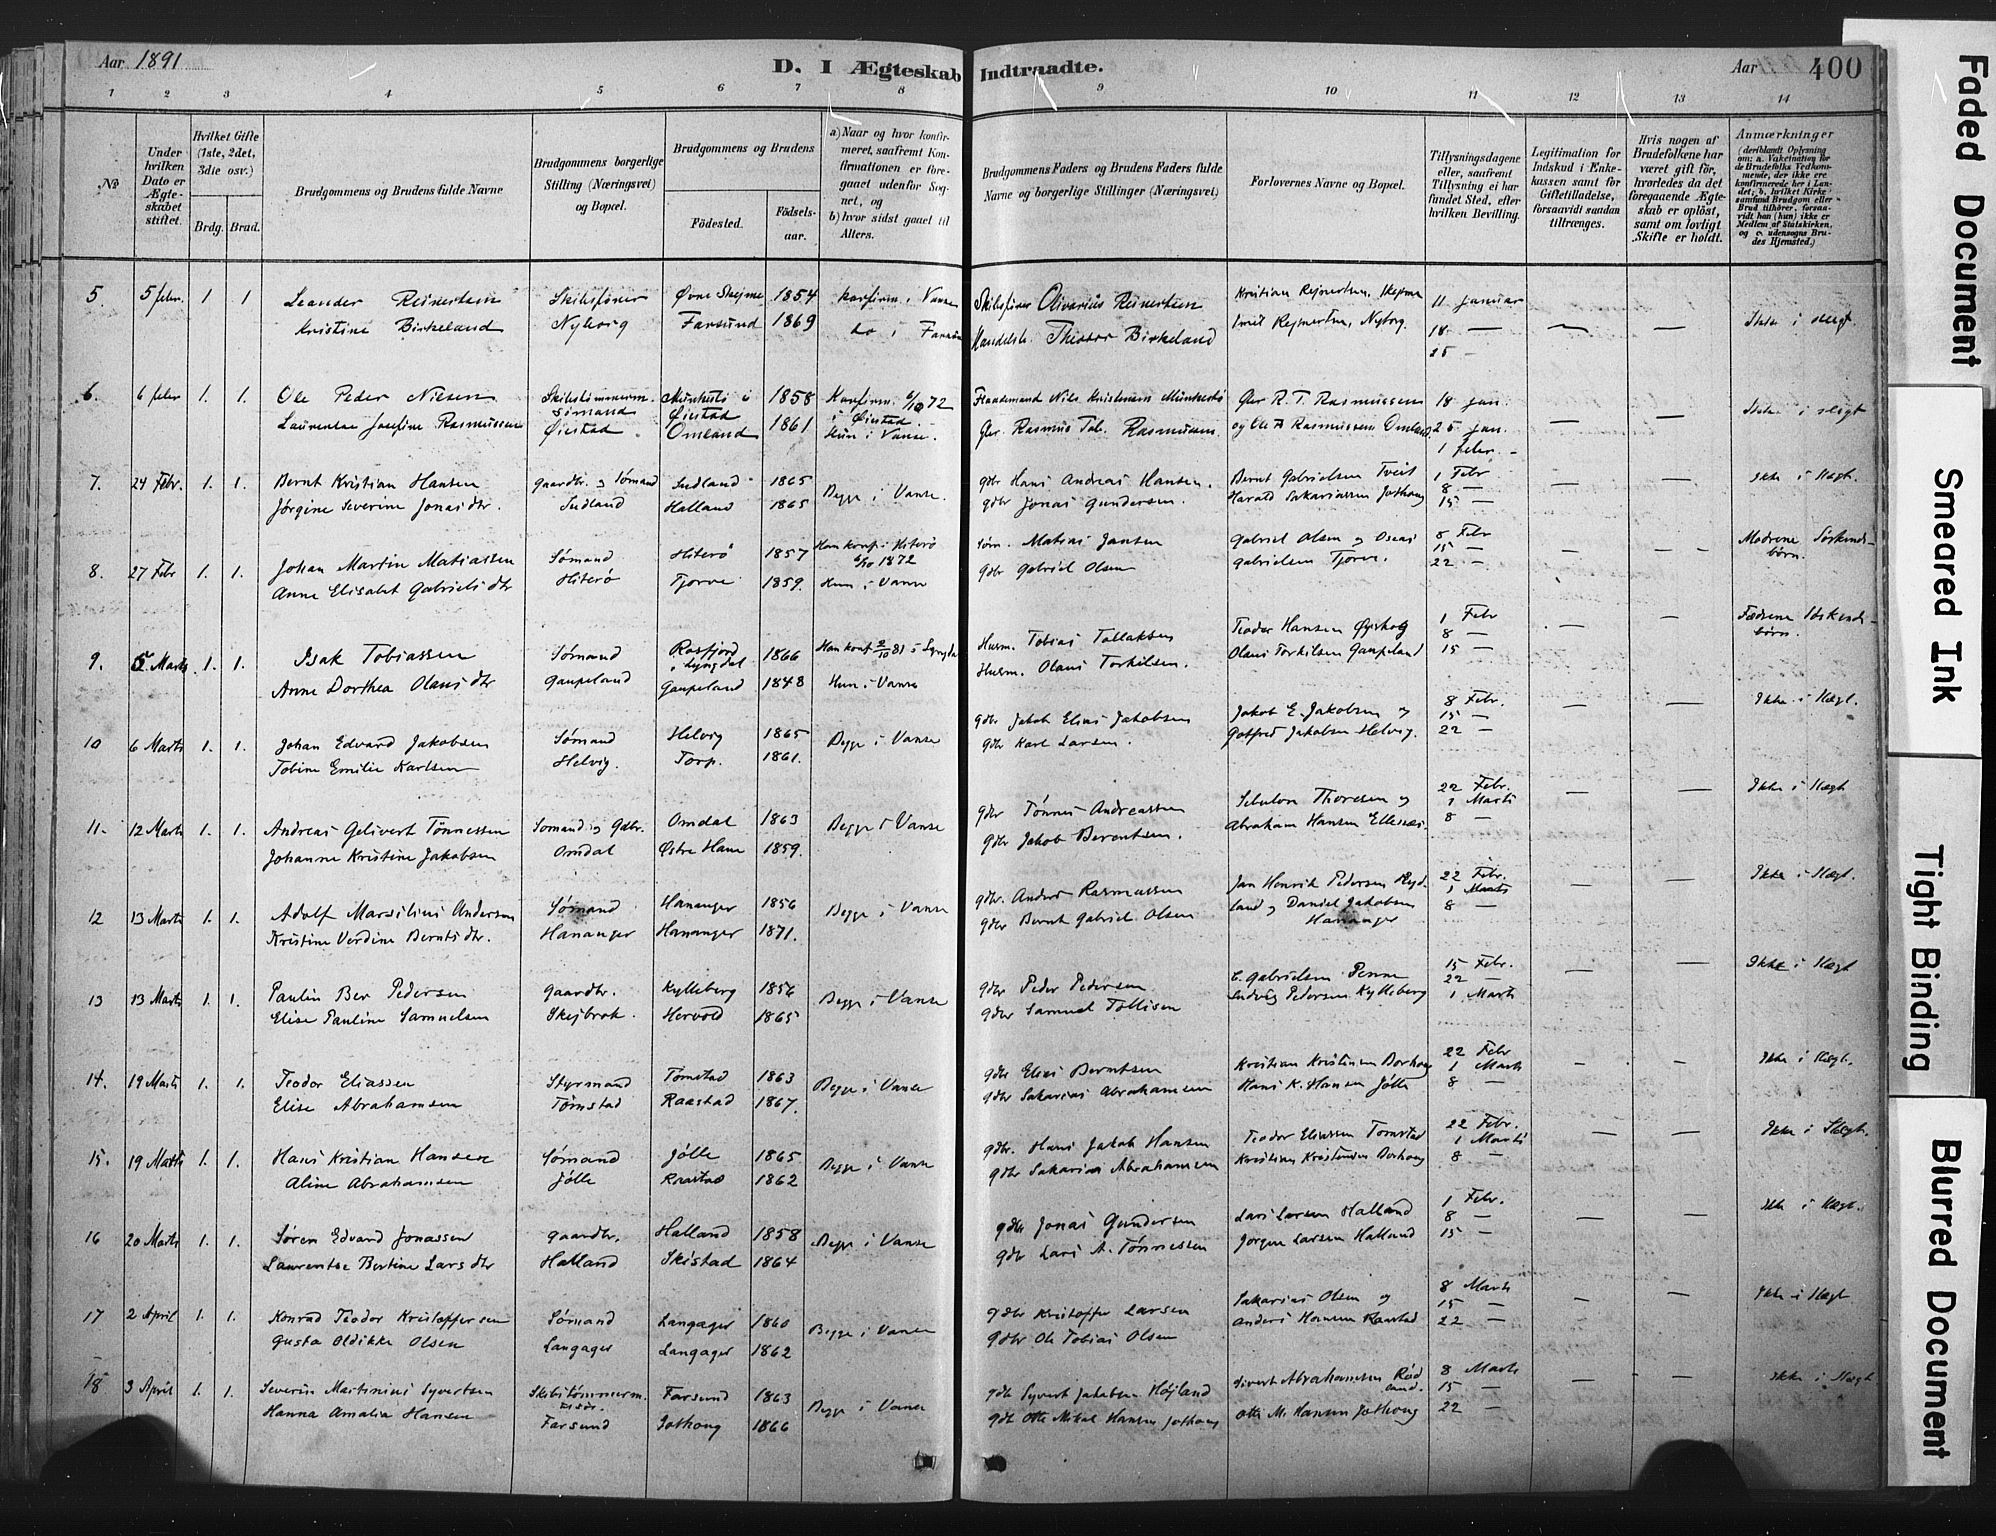 Aar 1891
D. I Ægteskab Indtraadte.
Aar 400
1 2 3 4 5 6 7 8 9 10 11 12 13 14
№
Under hvilken Dato er Ægteskabet stiftet.
Hvilket Gifte (1ste, 2det, 3die osv.)
Brdg. Brud.
Brudgommens og Brudens fulde Navne
Brudgommens borgerlige Stilling (Næringsvei) og Bopæl.
Brudgommens og Brudens
Fødested.
Fødsels-aar.
a) Naar og hvor konfirmeret, saafremt Konfirmationen er foregaaet udenfor Sognet, og
b) hvor sidst gaaet til Alters.
Brudgommens Faders og Brudens Faders fulde Navne og borgerlige Stillinger (Næringsvei)
Forlovernes Navne og Bopæl.
Tillysningsdagene eller, saafremt Tillysning ei har fundet Sted, efter hvilken Bevilling.
Legitimation for Indskud i Enkekassen samt for Giftetilladelse, forsaavidt saadan tiltrænges.
Hvis nogen af Brudefolkene har været gift før, hvorledes da det foregaaende Ægteskab er opløst, samt om lovligt Skifte er holdt.
Anmærkninger
(deriblandt Oplysning om: a. Vakcination for de Brudefolks Vedkommende, der ikke ere konfirmerede her i Landet; b. hvilket Kirkesamfund Brudgom eller Brud tilhører, forsaavidt han (hun) ikke er Medlem af Statskirken, og c. udensogns Brudes Hjemsted.)
5. 5 febr. 1 1 Leander Reinertsen Skibsfører Øvre Skejme 1854 konfirm. i Vanse Skibsfører Olivarius Reinertsen Kristian Rejnertsen, Skejme 11 januar
Kristine Birkeland Nyborg Farsund 1869 do i Farsund Handelsb. Theodor Birkeland Rejnertsen, Nyborg. 18 — — — Ikke i slegt.
25 -
6. 6 febr 1. 1. Ole Peder Nilsen Skibstømmerm. 1858 Konfirm. 6/10 72 Nils Kristensen Gbr R. T. Rasmussen 18 jan.
Sømand Øiestad i Øiestad. — — Ikke i slegt
Laurentse Josefine Rasmussen Øiestad Omland 1861 Hun i Vanse. Gbr. Rasmus Tob. Rasmussen. og Ole Rasmussen Omland 25 jan.
1 febr. -
7. 24 Febr. 1. 1. Bernt Kristian Hansen gaardbr. og Sømand Sudland 1865 Begge i Vanse. gdbr Hans Andreas Hansen. Bernt Gabrielsen Tveit 1 Febr — — Ikke i Slegt.
Jørgine Severine Jonasdtr. Sudland Halland 1865 gdbr Jonas Gundersen. Harald Sakariassen Jothong 8 —
15 —
8. 27 Febr 1. 1. Johan Martin Matiassen Sømand Hiterø 1857 Han konf. i Hiterø 6/10 1872 Sørn. Matias Jansen Gabriel Olsen og Oseas 8 Febr — — - Mødrene Søskendebørn.
Anne Elisabet Gabrielsdtr Hiterø Tjorve 1859. Hun i Vanse gdbr Gabriel Olsen Gabrielsen Tjorve. 15 —
22 -
9. 5 Marts 1. 1. Isak Tobiassen Sømand Rosfjord i Lyngdal 1866 Han konf 2/10 81 i Lyngdal Husm. Tobias Tollaksen Teodor Hansen 1 Febr — — Fædrene Søskendebørn.
Anne Dorthea Olausdtr Gaupeland Gaupeland 1848 Hun i Vanse Husm. Olaus Torkilsen. Olaus Torkilsen Gaupeland 8 —
15 —
10 6 Marts 1. 1. Johan Edvard Jakobsen Sømand Helvig 1865 Begge i Vanse gdbr Jakob Elias Jakobsen Jakob E. Jakobsen og 8 Febr. — — Ikke i Slegt.
Tobine Emilie Karlsen Helvig. Torp. 1861. gdbr Karl Larsen. Gotfred Jakobsen Helvig. 15 —
22 —
11. 12 Marts 1. 1. Andreas Gelivert Tønnessen Sømand og Gdbr. Omdal 1863 Begge i Vanse gdbr Tønnes Andreassen Sebulon Thoresen og 22 Febr. — — Ikke i Slegt
Johanne Kristine Jakobsen Omdal Østre Hane 1859. gdbr Jakob Berentsen. Abraham Hansen Ellenæs. 1 Marts
8 —
12 13 Marts 1. 1. Adolf Marsilius Andersen Sømand Hananger 1856 Begge i Vanse gdbr. Anders Rasmussen Jan Henrik Pedersen Rydland og Daniel Jakobsen Hananger 22 Febr. — — Ikke i Slegt.
Kristine Verdine Berntsdtr. Hananger Hananger 1871. gdbr Bernt Gabriel Olsen 1 Marts
8 —
13 13 Marts 1. 1. Paulin Ber Pedersen gaardbr. Kylleberg 1856 Begge i Vanse gdbr Peder Pedersen Gabrielsen Penne 15 Febr. — — Ikke i Slegt
Elise Pauline Samuelsen Skejbrok. Hervold 1865 gdbr Samuel Tollisen Ludvig Pedersen Kylleberg 22
1 Marts
14. 19 Marts 1. 1. Teodor Eliassen Styrmand Tomstad 1863 Begge i Vanse gdbr Elias Berntsen Kristian Kristensen Borhaug 22 Febr - — Ikke i Slegt.
Elise Abrahamsen Tomstad Raastad 1867. gdbr Sakarias Abrahamsen Hans K. Hansen Jølle 1 Marts
8 —
15. 19 Marts 1. 1. Hans Kristian Hansen Sømand Jølle 1865 Begge i Vanse gdbr. Hans Jakob Hansen Teodor Eliassen Tomstad 22 Febr. — — Ikke i Slegt.
Aline Abrahamsen Jølle Raastad 1862 gdbr Sakarias Abrahamsen Kristian Kristensen Borhaug 1 Marts
8 —
16 20 Marts 1. 1. Søren Edvard Jonassen gaardbr. Halland 1858 Begge i Vanse gdbr Jonas Gundersen Lars Larsen Halland 1 Febr. — — Ikke i Slegt.
Laurentse Bertine Larsdtr Halland Skistad 1864 gdbr Lars A. Tønnessen Jørgen Larsen Halland 8 —
15 —
17 2 April 1. 1. Konrad Teodor Kristoffersen Sømand Langager 1860 Begge i Vanse gdbr Kristoffer Larsen Sakarias Olsen og 8 Marts — — Ikke i Slegt
Gusta Oldikke Olsen Langager Langager 1862 gdbr Ole Tobias Olsen Anders Hansen Raastad 15 —
22 —
18 3 April 1. 1. Severin Martinius Syvertsen Skibstømmerm. Farsund 1863 Begge i Vanse gdbr Syvert Jakobsen Højland Sivert Abrahamsen Rødland. 8 Marts — — Ikke i Slegt
Hanna Amalia Hansen Farsund Jothong 1866 gdb Otto Mikal Hansen Jothong Otto M. Hansen Jothong 15 —
22 —
Faded Document
Smeared Ink
Tight Binding
Blurred Document